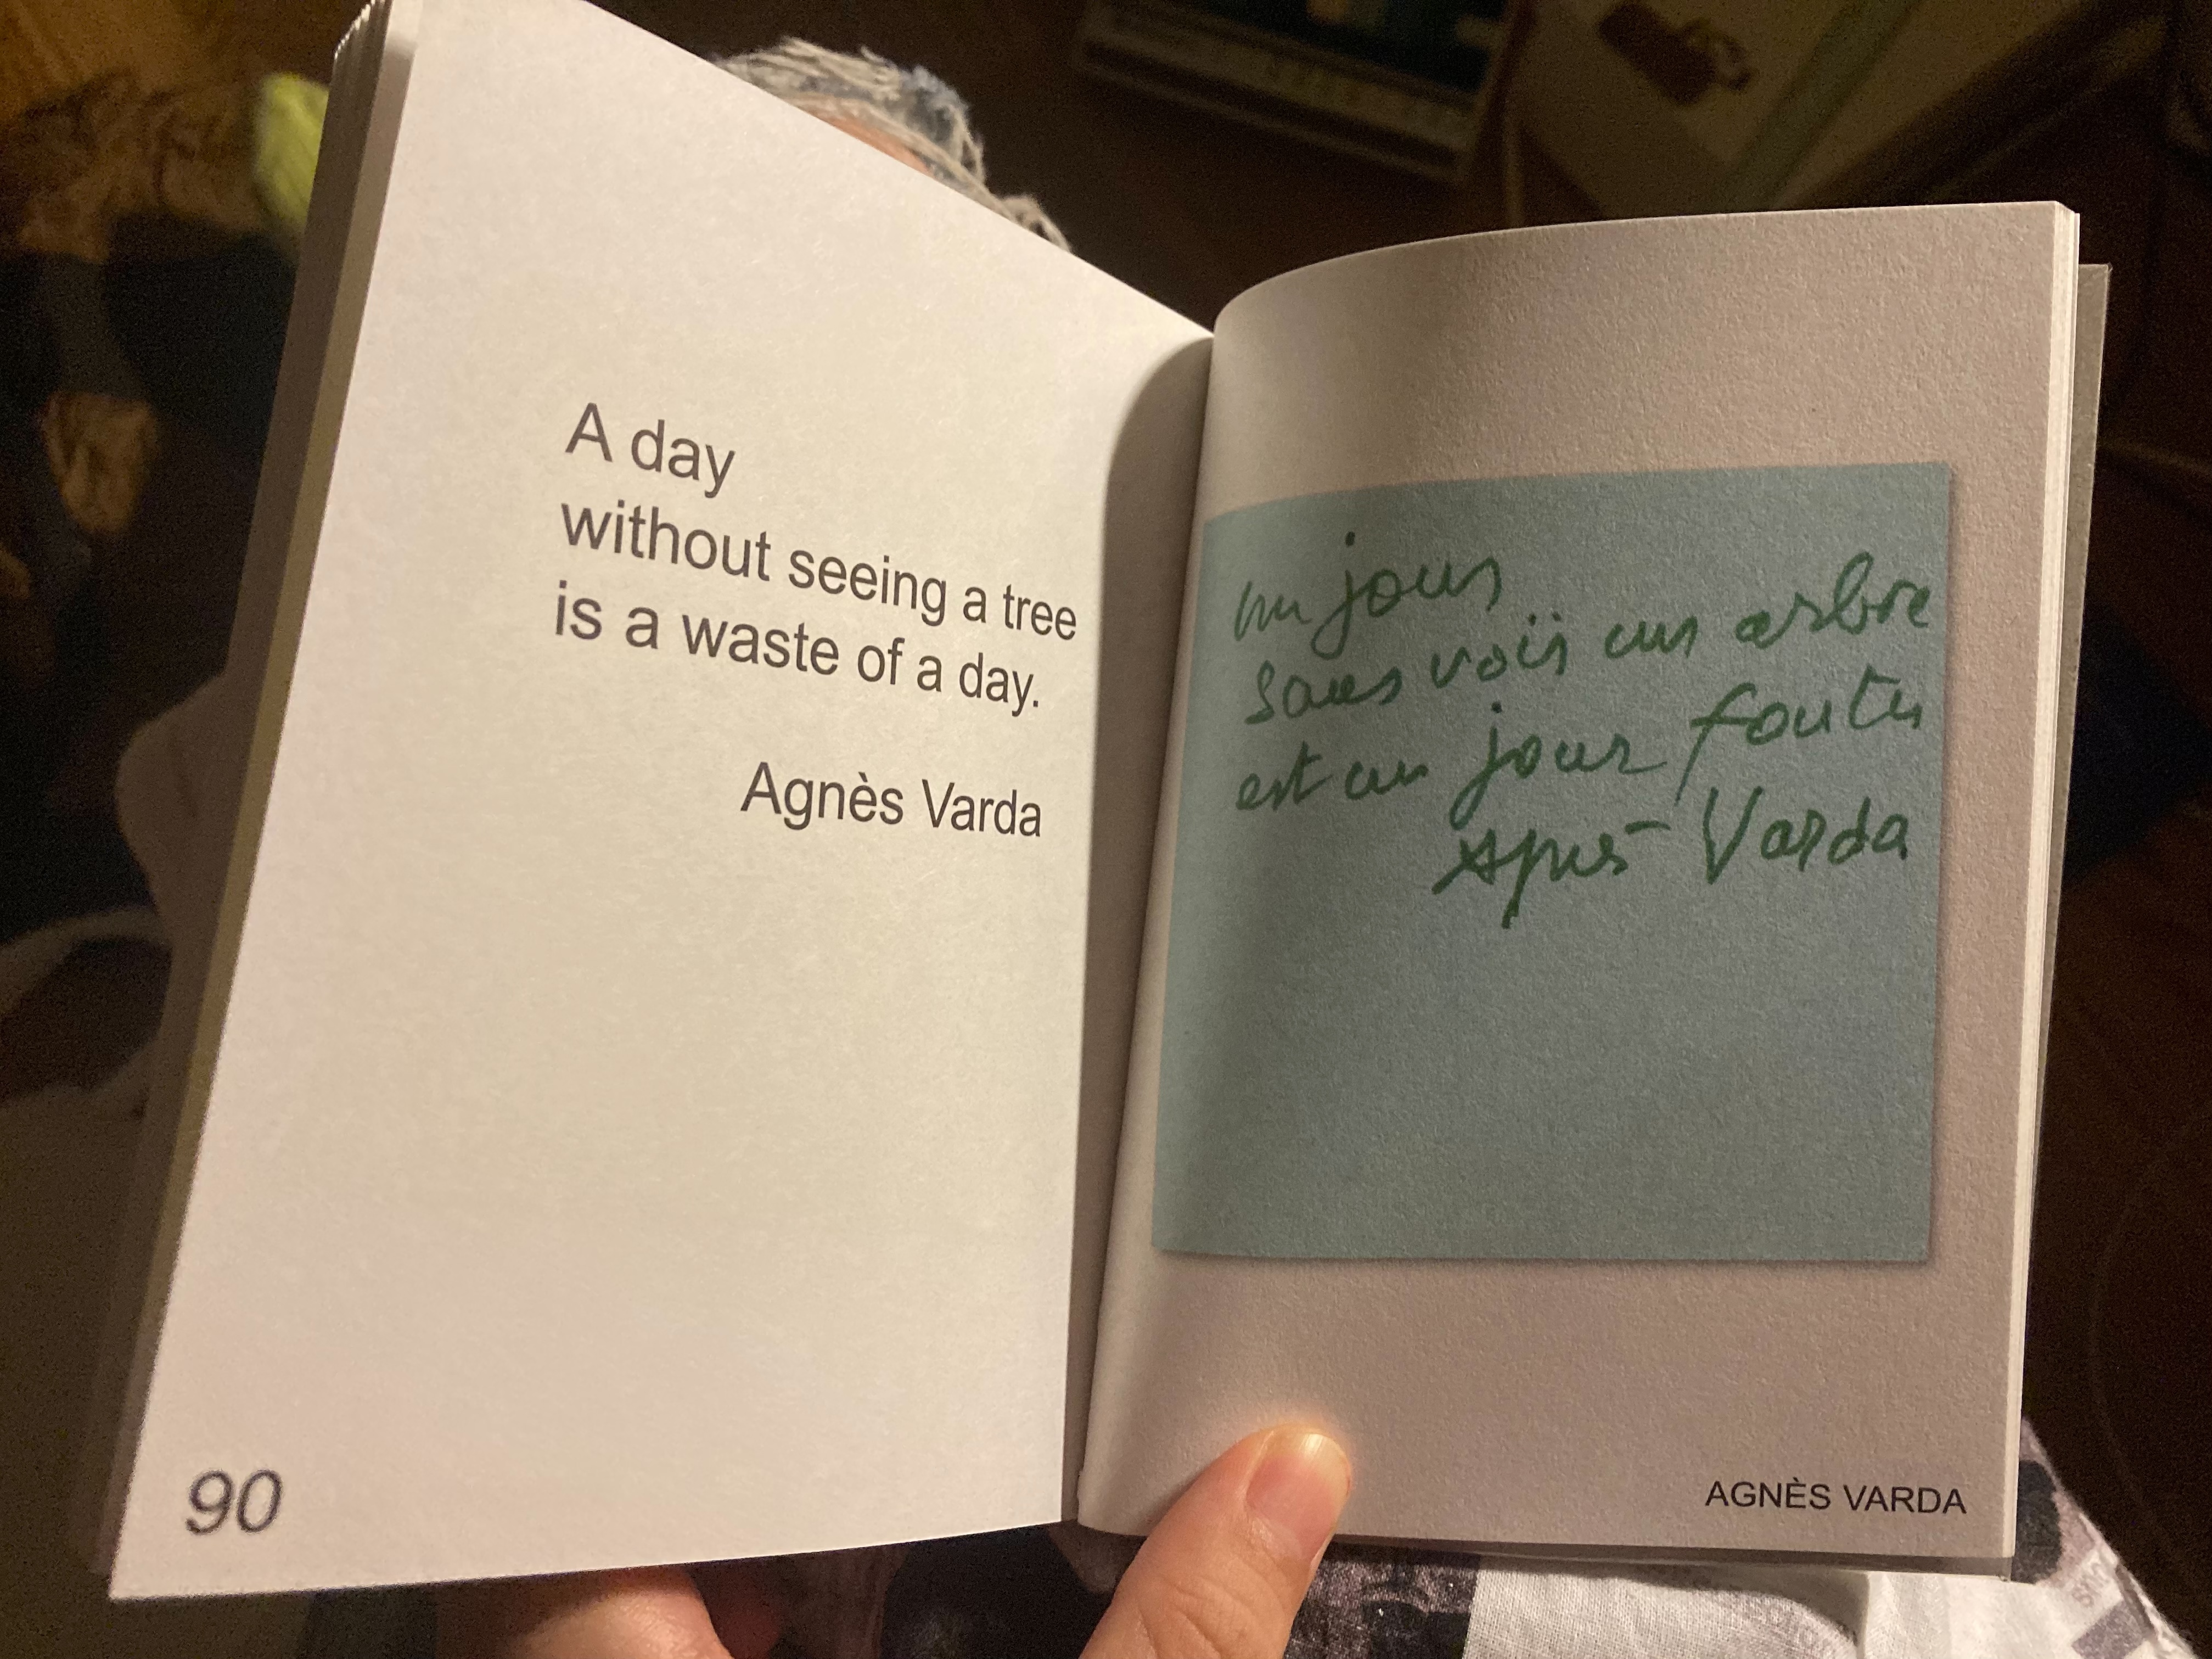 A day
without seeing a tree
is a waste of a day.
Agnès Varda
90
un jour
sans voir un arbre
est un jour foutu
Agnès Varda
AGNÈS VARDA